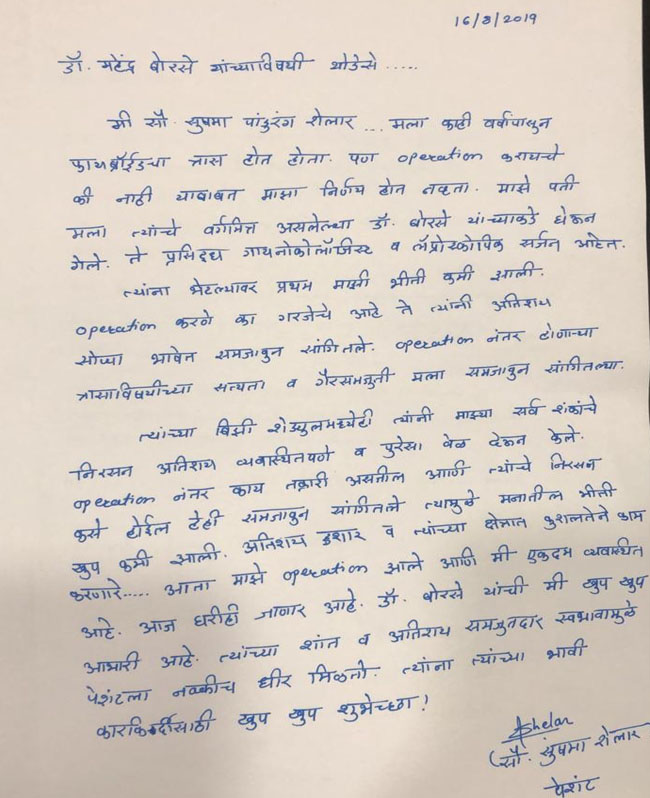 16/8/2019
डॉ. महेंद्र बोरसे यांच्याविषयी थोडेसे .....
मी सौ. सुषमा पांडुरंग शेलार ... मला काही वर्षांपासुन
फायब्रॉईडचा त्रास होत होता. पण operation करायचे
की नाही याबाबत माझा निर्णय होत नव्हता. माझे पती
मला त्यांचे वर्गमित्र असलेल्या डॉ. बोरसे यांच्याकडे घेऊन
गेले. ते प्रसिद्ध गायनोकोलॉजिस्ट व लॅप्रोस्कोपिक सर्जन आहेत.
त्यांना भेटल्यावर प्रथम माझी भीती कमी झाली.
operation करणे का गरजेचे आहे ते त्यांनी अतिशय
सोप्या भाषेत समजावुन सांगितले. operation नंतर होणाऱ्या
त्रासाविषयीच्या सत्यता व गैरसमजुती मला समजावुन सांगितल्या.
त्यांच्या बिझी शेड्युलमध्येही त्यांनी माझ्या सर्व शंकांचे
निरसन अतिशय व्यवस्थितपणे व पुरेसा वेळ देऊन केले.
operation नंतर काय तक्रारी असतील आणि त्यांचे निरसन
कसे होईल हेही समजावुन सांगितले त्यामुळे मनातील भीती
खुप कमी झाली. अतिशय हुशार व त्यांच्या क्षेत्रात कुशलतेने काम
करणारे..... आता माझे operation झाले आणि मी एकदम व्यवस्थित
आहे. आज घरीही जाणार आहे. डॉ. बोरसे यांची मी खुप खुप
आभारी आहे. त्यांच्या शांत व अतिशय समजुतदार स्वभावामुळे
पेशंटला नक्कीच धीर मिळतो. त्यांना त्यांच्या भावी
कारकिर्दीसाठी खुप खुप शुभेच्छा!
Shelar
(सौ. सुषमा शेलार
पेशंट